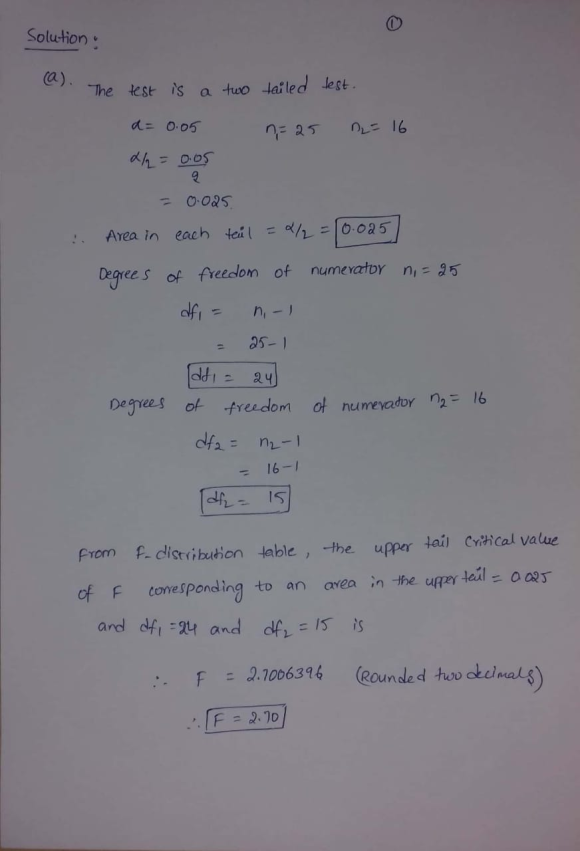 ①
Solution :
(a). The test is a two tailed test.
α = 0.05 n₁ = 25 n₂ = 16
α/2 = 0.05/2
= 0.025
∴ Area in each tail = α/2 = 0.025
Degrees of freedom of numerator n₁ = 25
df₁ = n₁ - 1
= 25-1
df₁ = 24
Degrees of freedom of numerator n₂ = 16
df₂ = n₂-1
= 16-1
df₂ = 15
From F-distribution table, the upper tail critical value
of F corresponding to an area in the upper tail = 0.025
and df₁ =24 and df₂ = 15 is
∴ F = 2.7006396 (Rounded two decimals)
∴ F = 2.70